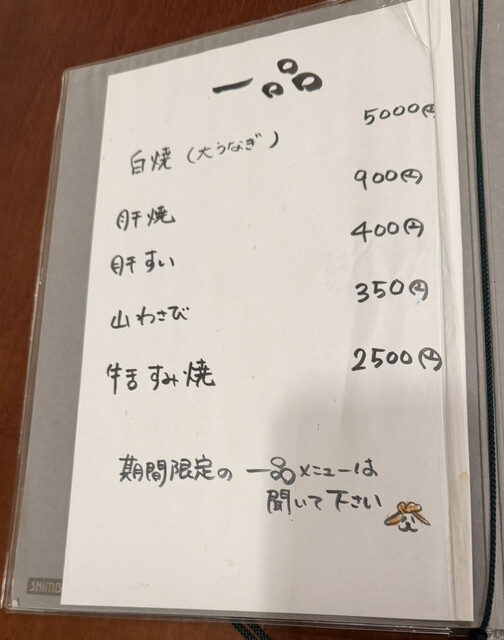 一品
白焼(大うなぎ) 5000円
肝焼 900円
肝すい 400円
山わさび 350円
牛舌すみ焼 2500円
期間限定の一品メニューは
聞いて下さい